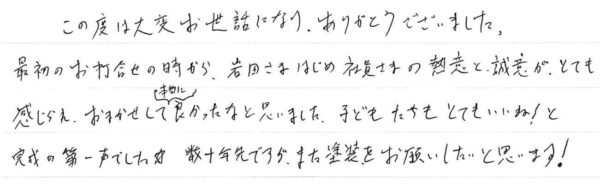 この度は大変お世話になり、ありがとうございました。
最初のお打合せの時から、岩田さまはじめ社員さまの熱意と誠意が、とても
感じられ、おまかせして本当に良かったなと思いました。子どもたちもとてもいいね!と
完成の第一声でした 数十年先ですが、また塗装をお願いしたいと思います!